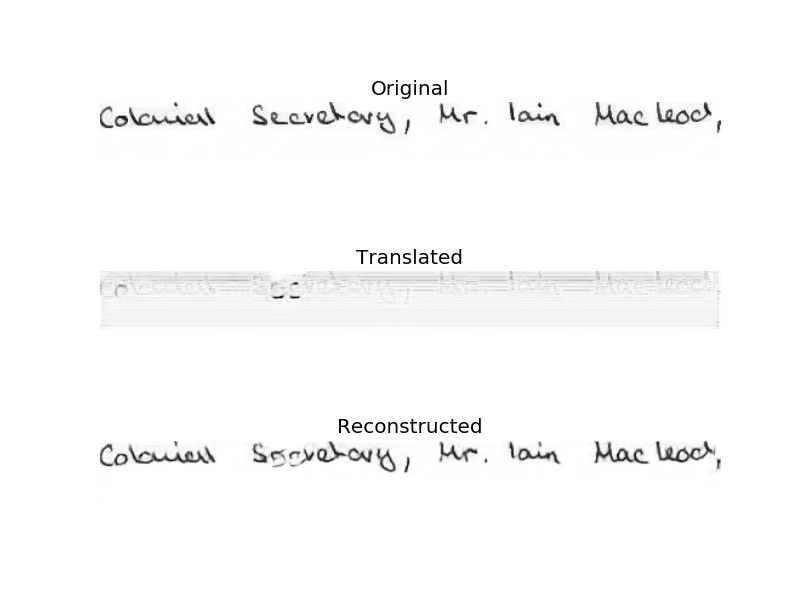 Original
Colonial Secretary, Mr. Iain Macleod,
Translated
Colonial Secretary, Mr. Iain Macleod,
Reconstructed
Colonial Secretary, Mr. Iain Macleod,